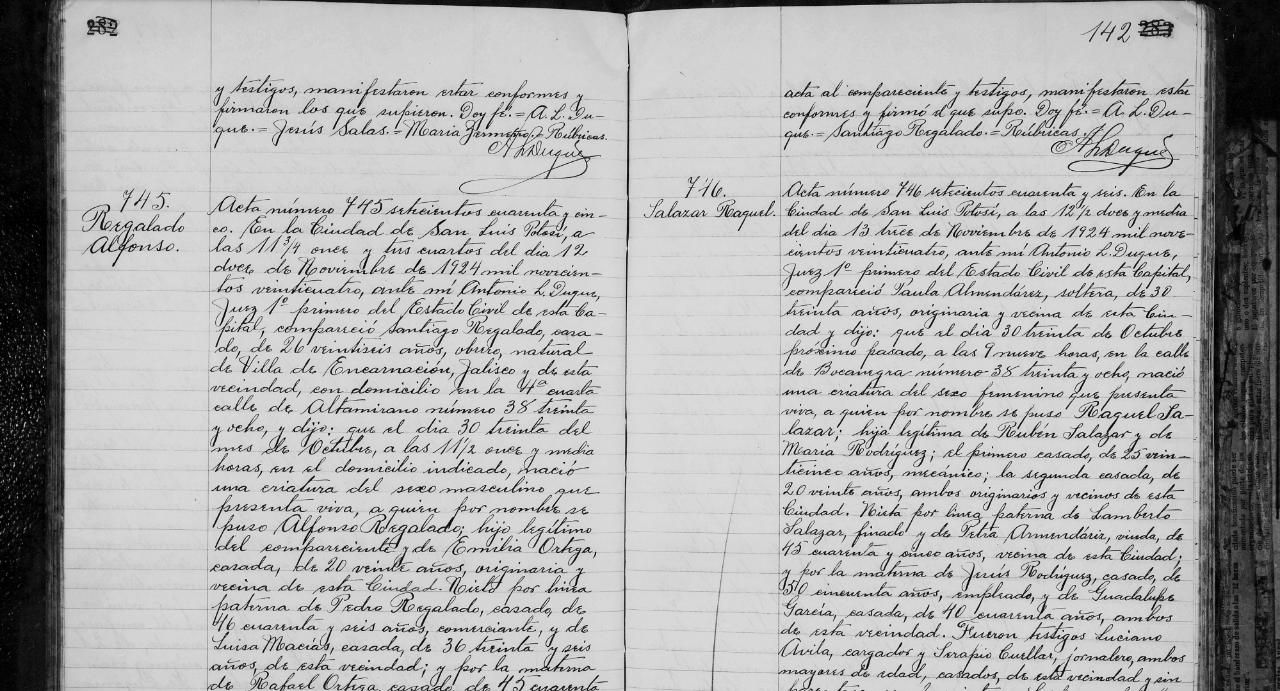 282
y testigos, manifestaron estar conformes y
firmaron los que supieron. Doy fé.= A. L. Du-
que.= Jesús Salas.= María Rúbricas.
A L Duque
745.
Regalado
Alfonso.
Acta número 745 setecientos cuarenta y cin-
co. En la Ciudad de San Luis Potosí, a
las 11 3/4 once y tres cuartos del dia 12
doce de Noviembre de 1924 mil novecien-
tos veinticuatro, ante mí Antonio L. Duque,
Juez 1º primero del Estado Civil de esta Ca-
pital, compareció Santiago Regalado, casa-
do, de 26 veintiseis años, obrero, natural
de Villa de Encarnación, Jalisco y de esta
vecindad, con domicilio en la 4ª cuarta
calle de Altamirano número 38 treinta
y ocho, y dijo: que el dia 30 treinta del
mes de Octubre, a las 11 1/2 once y media
horas, en el domicilio indicado, nació
una criatura del sexo masculino que
presenta viva, a quien por nombre se
puso Alfonso Regalado; hijo legítimo
del compareciente y de Emilia Ortega,
casada, de 20 veinte años, originaria y
vecina de esta Ciudad. Nieto por linea
paterna de Pedro Regalado, casado, de
46 cuarenta y seis años, comerciante, y de
Luisa Macías, casada, de 36 treinta y seis
años, de esta vecindad; y por la materna
de Rafael Ortega, casado, de 45 cuarenta
142 283
acta al compareciente y testigos, manifestaron estar
conformes y firmó el que supo. Doy fé.= A. L. Du-
que.= Santiago Regalado.= Rúbricas.
A L Duque
746.
Salazar Raquel.
Acta número 746 setecientos cuarenta y seis. En la
Ciudad de San Luis Potosí, a las 12 1/2 doce y media
del dia 13 trece de Noviembre de 1924 mil nove-
cientos veinticuatro, ante mí Antonio L. Duque,
Juez 1º primero del Estado Civil de esta Capital,
compareció Paula Almendárez, soltera, de 30
treinta años, originaria y vecina de esta Ciu-
dad y dijo: que el dia 30 treinta de Octubre
próximo pasado, a las 9 nueve horas, en la calle
de Bocanegra número 38 treinta y ocho, nació
una criatura del sexo femenino que presenta
viva, a quien por nombre se puso Raquel Sa-
lazar; hija legítima de Rubén Salazar y de
María Rodríguez; el primero casado, de 25 vein-
ticinco años, mecánico; la segunda casada, de
20 veinte años, ambos originarios y vecinos de esta
Ciudad. Nieta por linea paterna de Lamberto
Salazar, finado y de Petra Armendáriz, viuda, de
45 cuarenta y cinco años, vecina de esta Ciudad;
y por la materna de Jesús Rodríguez, casado, de
50 cincuenta años, empleado, y de Guadalupe
García, casada, de 40 cuarenta años, ambos
de esta vecindad. Fueron testigos Luciano
Avila, cargador y Serapio Cuellar, jornalero, ambos
mayores de edad, casados, de esta vecindad y sin